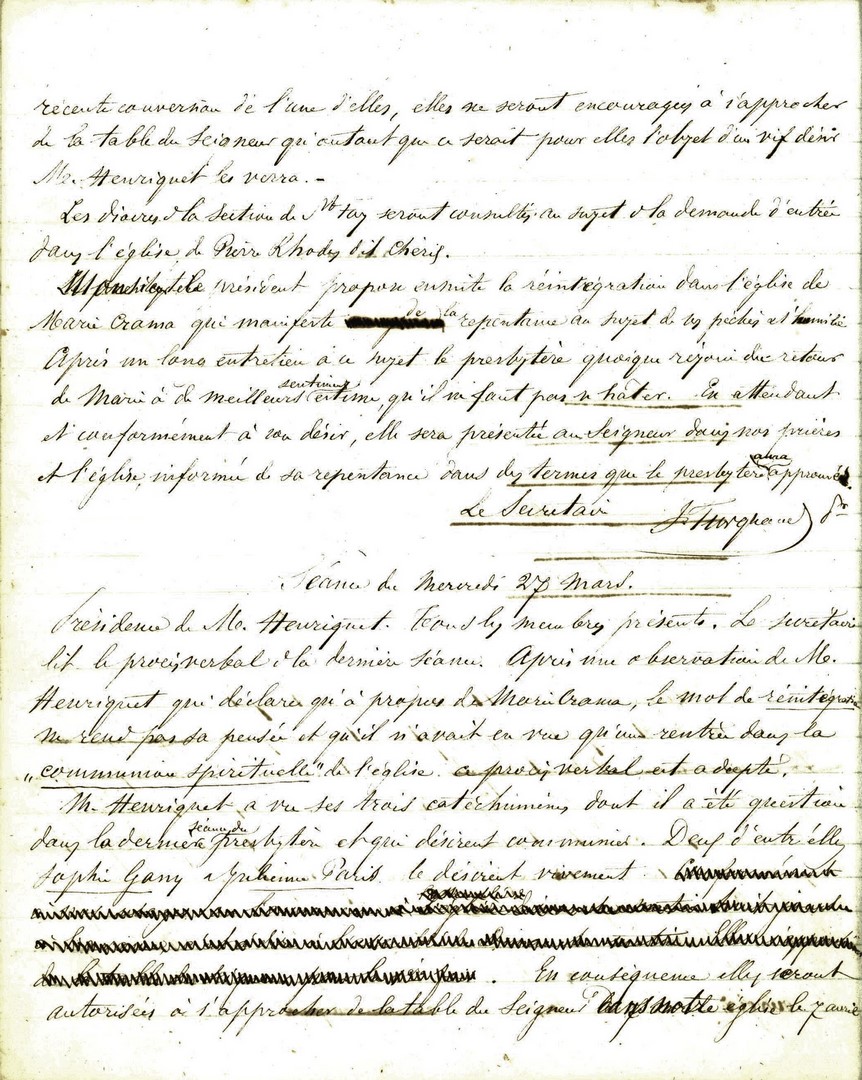 récente conversion de l'une d'elles, elles ne seront encouragées à s'approcher
de la table du Seigneur qu'autant que ce serait pour elles l'objet d'un vif désir
Mr. Henriquet les verra. -
Les diacres d la section de Ste Foy seront consultés au sujet d la demande d'entrée
dans l'église de Pierre Rhodes dit Chéris.
le président propose ensuite la réintégration dans l'église de
Marie Crama qui manifeste de la repentance au sujet de ses péchés et s'humilie
Après un long entretien à ce sujet le presbytère quoique réjoui du retour
de Marie à de meilleurs sentiments estime, qu'il ne faut pas se hâter. En attendant
et conformément à son désir, elle sera présentée au Seigneur dans nos prières
et l'église informée de sa repentance dans des termes que le presbytère aura approuvés.
Le Secrétaire
Séance du Mercredi 27 Mars.
Présidence de Mr. Henriquet. Tous les membres présents. Le secrétaire
lit le procès verbal d la dernière séance. Après une observation de Mr.
Henriquet qui déclare qu'à propos de Marie Crama, le mot de réintégration
ne rend pas sa pensée et qu'il n'avait en vue qu'une rentrée dans la
"communion spirituelle" de l'église. ce procès verbal est adopté.
M. Henriquet a vu ses trois catéchumènes dont il a été question
dans la dernière séance du presbytère et qui désirent communier. Deux d'entr'elles
Sophie Gany et Julienne Paris le désirent vivement.
En conséquence elles seront
autorisées à s'approcher de la table du Seigneur dans notre église le 7 avril